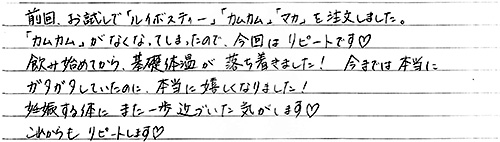 前回、お試しで「ルイボスティー」「カムカム」「マカ」を注文しました。
「カムカム」がなくなってしまったので、今回はリピートです♡
飲み始めてから、基礎体温が落ち着きました！ 今までは本当に
ガタガタしていたのに、本当に嬉しくなりました！
妊娠する体にまた一歩近づいた気がします♡
これからもリピートします♡